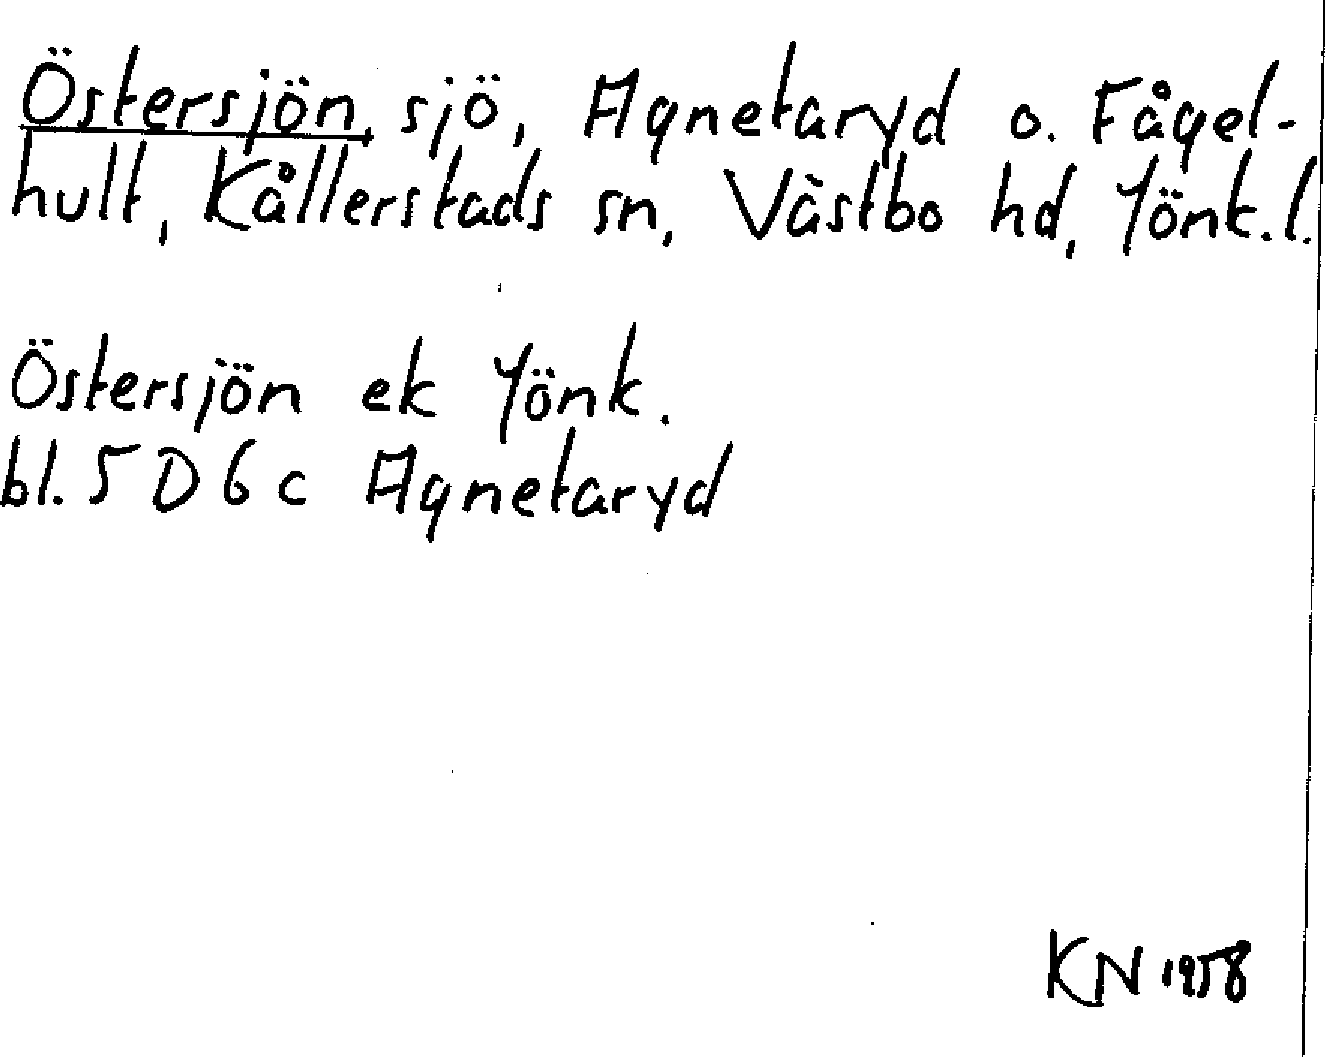 Östersjön, sjö, Agnetaryd o. Fågel-
hult, Kållerstads sn, Västbo hd, Jönk.l.
Östersjön ek Jönk.
bl. 5 D 6 c Agnetaryd
KN 1958